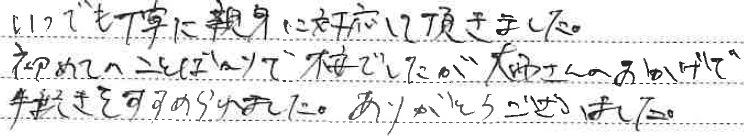 いつでも丁寧に親身に対応して頂きました。
初めてのことばかりで でしたが さんのおかげで
手続きをすすめられました。ありがとうございました。